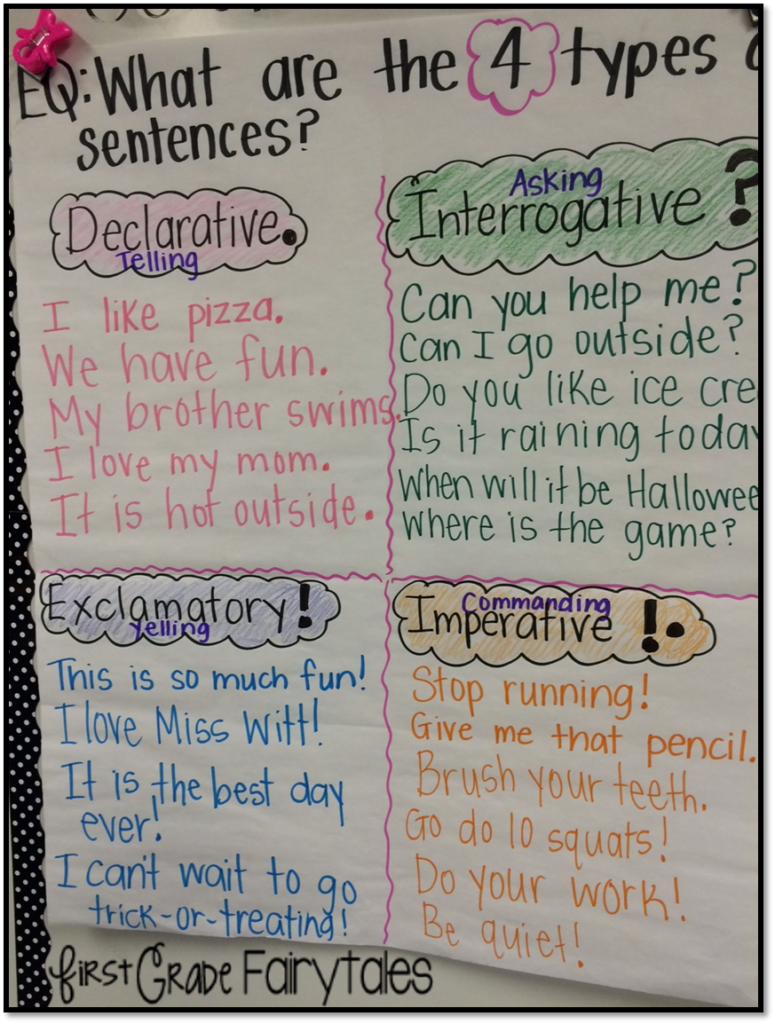 EQ: What are the 4 types
sentences?
Declarative.
Telling
I like pizza.
We have fun.
My brother swims.
I love my mom.
It is hot outside.
Asking
Interrogative ?
Can you help me?
Can I go outside?
Do you like ice cre
Is it raining today
When will it be Hallowee
Where is the game?
Exclamatory!
Yelling
This is so much fun!
I love Miss Witt!
It is the best day
ever!
I can't wait to go
trick-or-treating!
Commanding
Imperative !.
Stop running!
Give me that pencil.
Brush your teeth.
Go do 10 squats!
Do your work!
Be quiet!
First Grade Fairytales